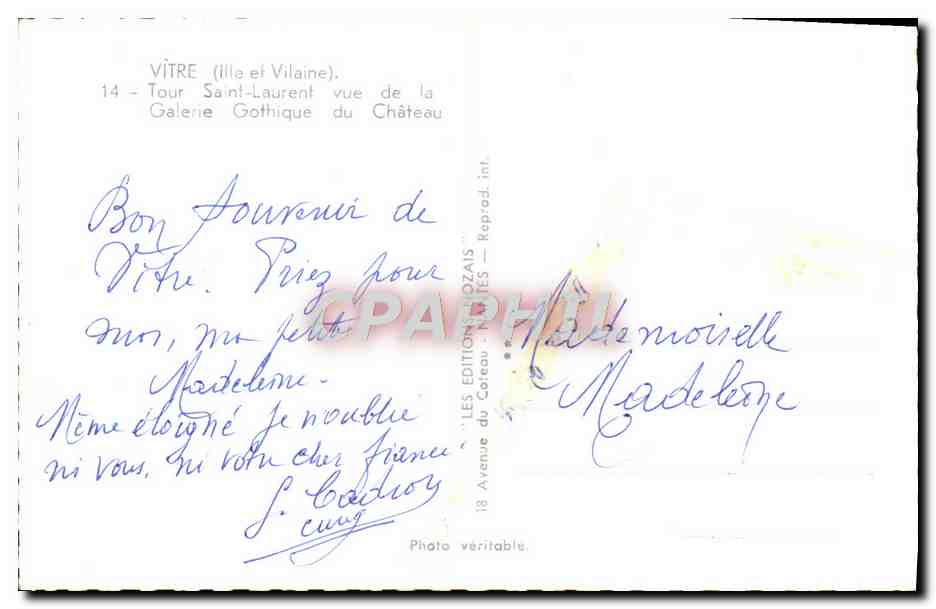 VÎTRE (Ille et Vilaine).
14 - Tour Saint-Laurent vue de la
Galerie Gothique du Château
Bon souvenir de
Vitré. Priez pour
moi, ma petite
Madeleine.
Même éloigné je n'oublie
ni vous, ni votre cher fiancé.
Photo véritable.
"LES EDITIONS NOZAIS"
18 Avenue du Coteau - NANTES — Reprod. int.
Mademoiselle
Madeleine
CPAPHIL